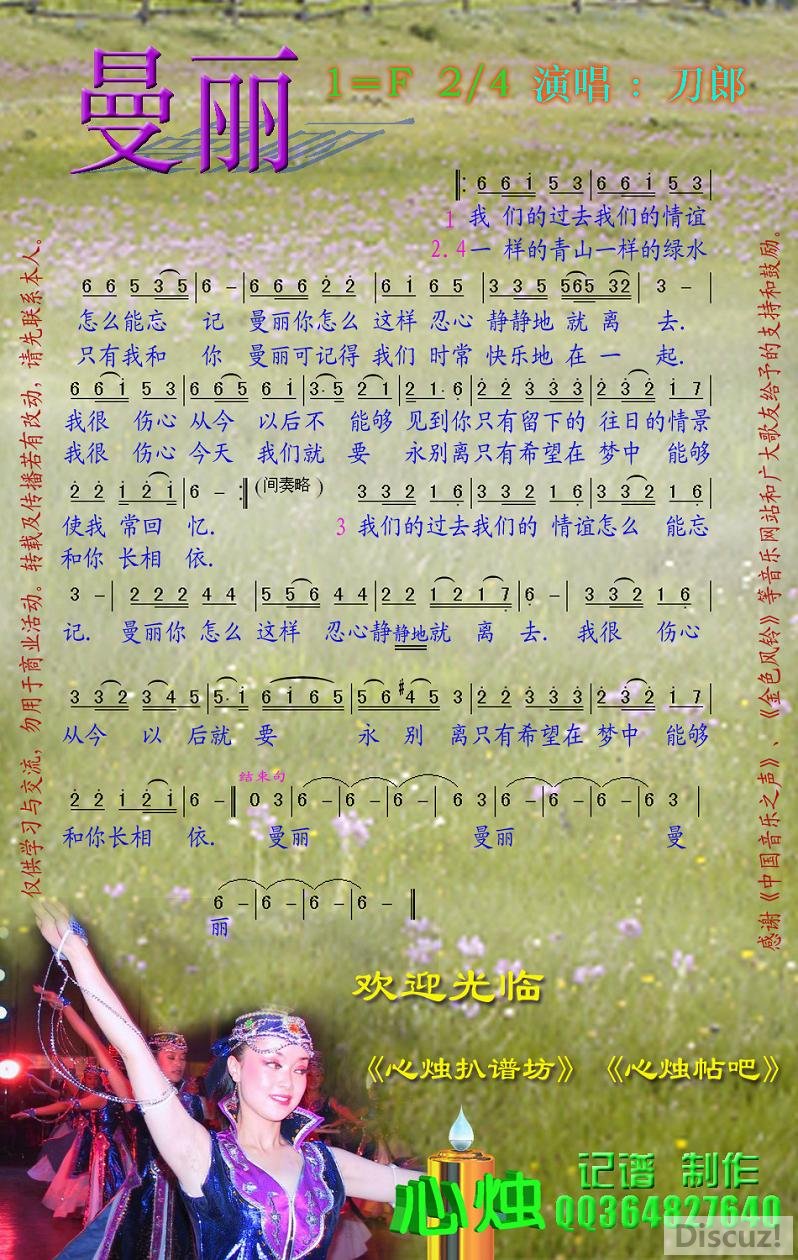 曼丽 1=F 2/4 演唱：刀郎
‖: 6 6 i 5 3 | 6 6 i 5 3 |
1 我 们的过去我们的情谊
2.4 一 样的青山一样的绿水
6 6 5 3 5 | 6 - | 6 6 6 2 2 | 6 i 6 5 | 3 3 5 565 32 | 3 - |
怎么能忘 记 曼丽你怎么 这样 忍心 静静地 就 离 去.
只有我和 你 曼丽可记得 我们 时常 快乐地 在 一 起.
6 6 i 5 3 | 6 6 5 6 i | 3· 5 2 1 | 2 1· 6 | 2 2 3 3 3 | 2 3 2 i 7 |
我很 伤心 从今 以后不 能够 见到你只有留下的 往日的情景
我很 伤心 今天 我们就 要 永别离只有希望在 梦中 能够
2 2 i 2 i | 6 - :‖ (间奏略) 3 3 2 1 6 | 3 3 2 1 6 | 3 3 2 1 6 |
使我 常回 忆. 3 我们的过去我们的 情谊怎么 能忘
和你 长相 依.
3 - | 2 2 2 4 4 | 5 5 6 4 4 | 2 2 1 2 1 7 | 6 - | 3 3 2 1 6 |
记. 曼丽你 怎么 这样 忍心静静地就 离 去. 我很 伤心
3 3 2 3 4 5 | 5· i 6 i 6 5 | 5 6 #4 5 3 | 2 2 3 3 3 | 2 3 2 i 7 |
从今 以 后就 要 永 别 离只有希望在 梦中 能够
结束句
2 2 i 2 i | 6 - ‖ 0 3 | 6 - | 6 - | 6 - | 6 3 | 6 - | 6 - | 6 - | 6 3 |
和你长相 依. 曼丽 曼丽 曼
6 - | 6 - | 6 - | 6 - ‖
丽
仅供学习与交流，勿用于商业活动。转载及传播若有改动，请先联系本人。
感谢《中国音乐之声》、《金色风铃》等音乐网站和广大歌友给予的支持和鼓励。
欢迎光临
《心烛扒谱坊》 《心烛帖吧》
心烛 记谱 制作
QQ364827640
Discuz!